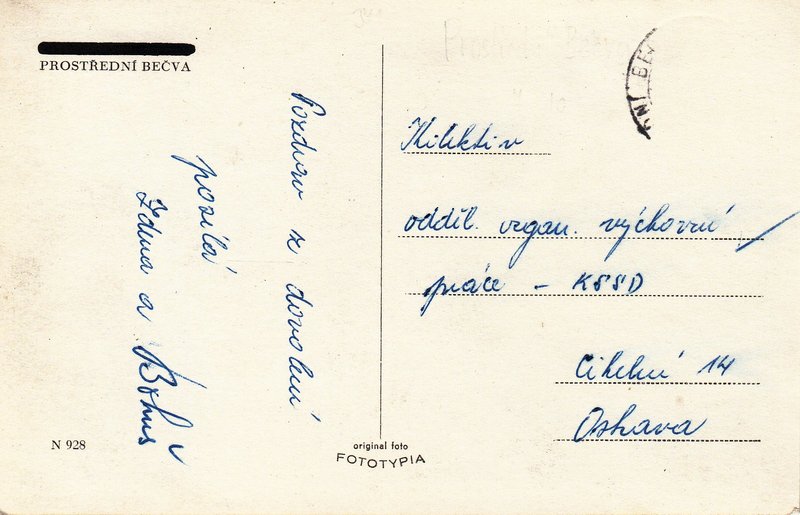 PROSTŘEDNÍ BEČVA
Pozdrav z dovolené
posílá
Zdena a Bohuš
N 928
original foto
FOTOTYPIA
DNÍ BEČ
Kolektiv
odděl. organ. výchovné
práce – KSSD
Cihelní 14
Ostrava